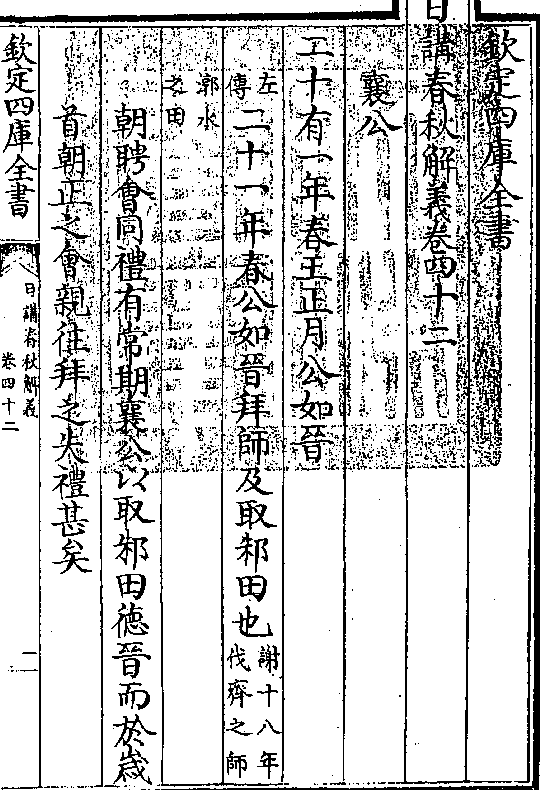 欽定四庫全書
日講春秋解義卷四十二
襄公
二十有一年春王正月公如晉
左傳二十一年春公如晉拜師及取邾田也謝十八年伐齊之師
漷水之田
朝聘會同禮有常期襄公以取邾田德晉而於歲
首朝正之會親往拜之失禮甚矣
欽定四庫全書
日講春秋解義
卷四十二